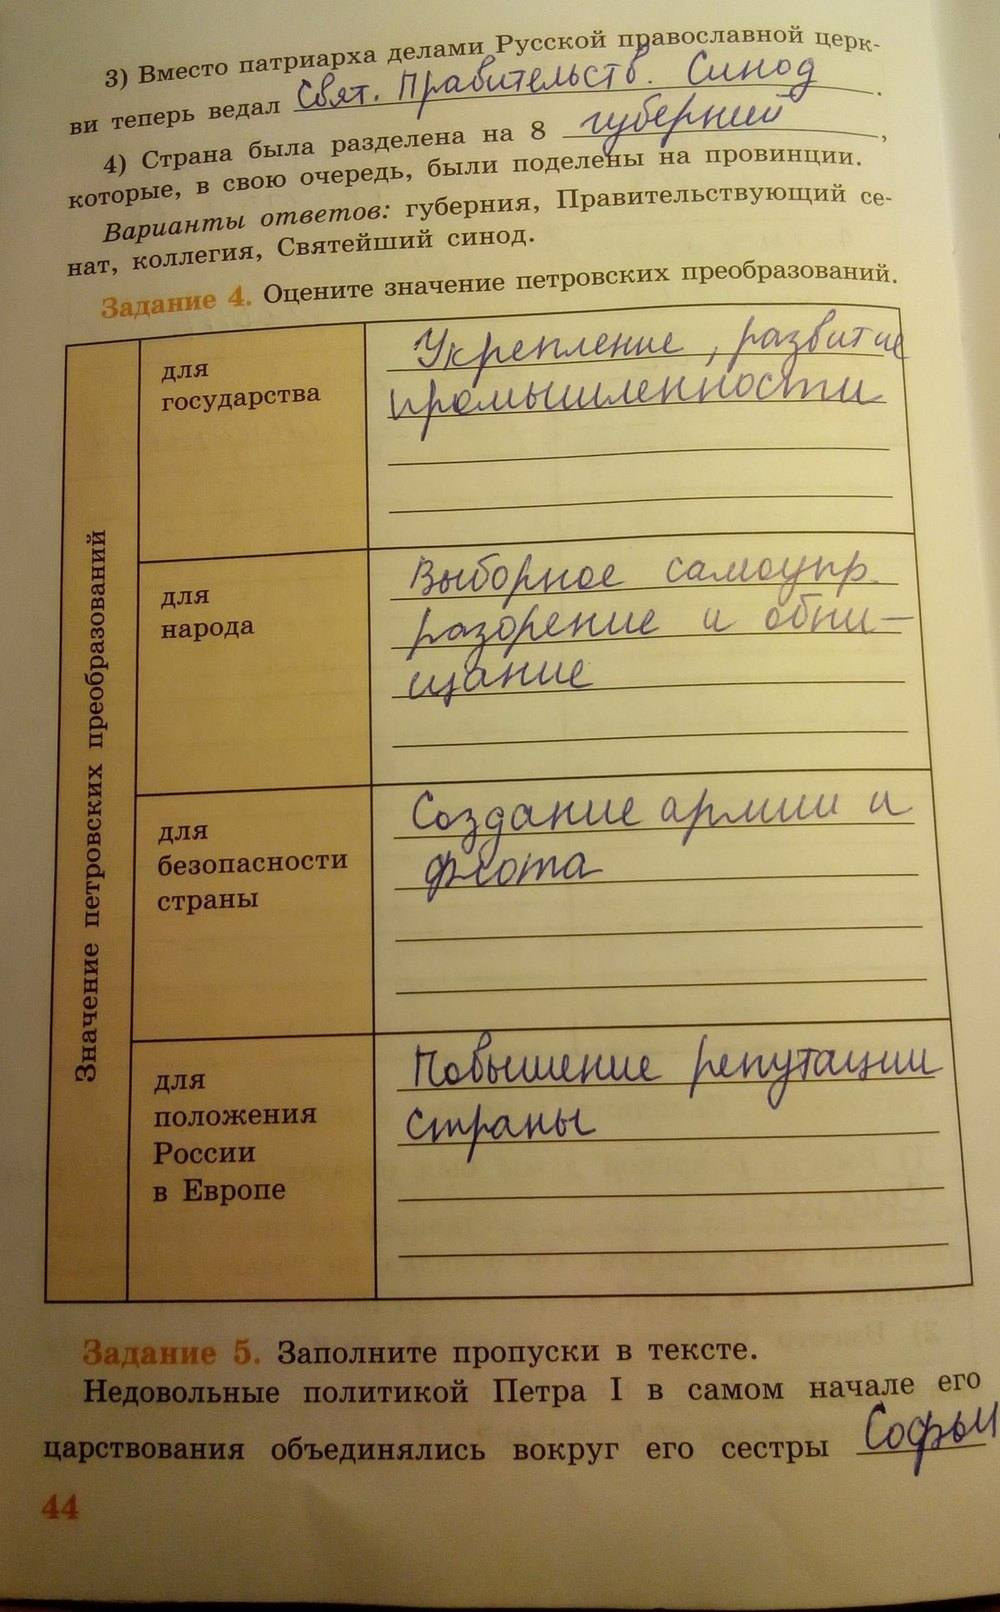 3) Вместо патриарха делами Русской православной церк-
ви теперь ведал Свят. Правительств. Синод.
4) Страна была разделена на 8 губерний,
которые, в свою очередь, были поделены на провинции.
Варианты ответов: губерния, Правительствующий се-
нат, коллегия, Святейший синод.
Задание 4. Оцените значение петровских преобразований.
Значение петровских преобразований
для
государства
Укрепление, развитие
промышленности
для
народа
Выборное самоупр.
разорение и обни-
щание
для
безопасности
страны
Создание армии и
флота
для
положения
России
в Европе
Повышение репутации
страны
Задание 5. Заполните пропуски в тексте.
Недовольные политикой Петра I в самом начале его
царствования объединялись вокруг его сестры Софьи
44